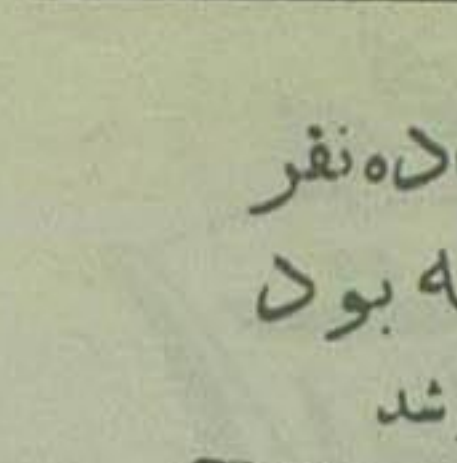 ده نفر
ه بود
شد